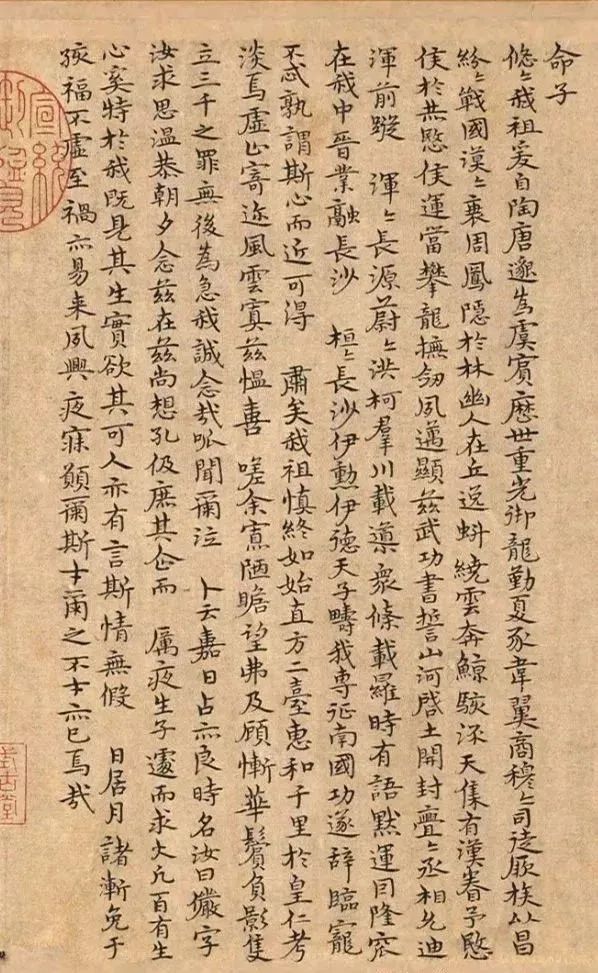 命子
悠〻我祖爰自陶唐邈為虞賓歷世重光御龍勤夏豕韋翼商穆〻司徒厥族以昌
紛〻戰國漠〻衰周鳳隱於林幽人在丘逸蚪繞雲奔鯨駭流天集有漢眷予愍
侯於赫愍侯運當攀龍撫劒夙邁顯茲武功書誓山河啓土開封亹〻丞相允迪
渾前蹤 渾〻長源蔚〻洪柯羣川載導衆條載羅時有語默運因隆窊
在我中晉業融長沙 桓〻長沙伊勳伊德天子疇我專征南國功遂辭臨寵
不忒孰謂斯心而近可得 肅矣我祖慎終如始直方二臺惠和千里於皇仁考
淡焉虛止寄迹風雲寘茲慍喜 嗟余寡陋瞻望弗及顧慚華鬢負影隻
立三千之罪無後為急我誠念哉呱聞爾泣 卜云嘉日占亦良時名汝曰儼字
汝求思溫恭朝夕念茲在茲尚想孔伋庶其企而 厲夜生子遽而求火凡百有生
心奚特於我既見其生實欲其可人亦有言斯情無假 日居月諸漸免于
孩福不虛至禍亦易來夙興夜寐願爾斯才爾之不才亦已焉哉
宣統
式古堂